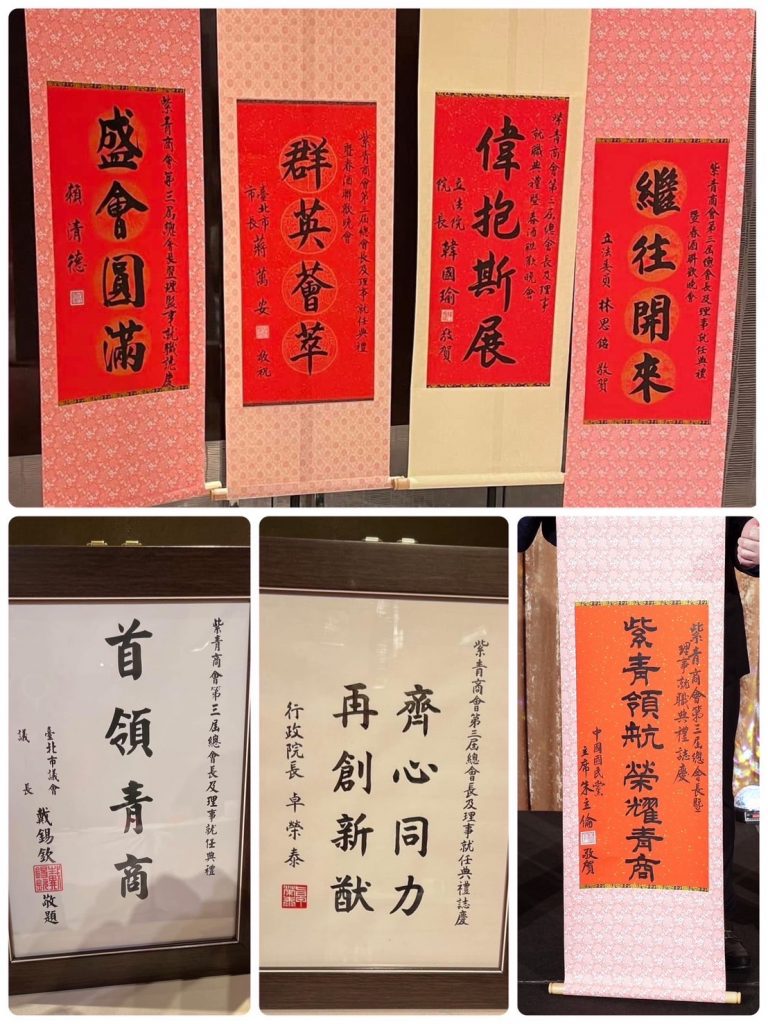 紫青商會第三屆總會長暨理監事就職誌慶
盛會圓滿
賴清德
紫青商會第三屆總會長及理事就任典禮
暨春酒聯歡晚會
群英薈萃
臺北市
市長 蔣萬安 敬祝
紫青商會第三屆總會長及理事
就職典禮暨春酒聯歡晚會
偉抱斯展
立法院
院長 韓國瑜 敬賀
紫青商會第三屆總會長及理事就任典禮
暨春酒聯歡晚會
繼往開來
立法委員 林思銘 敬賀
紫青商會第三屆總會長及理事就任典禮
首領青商
臺北市議會
議長 戴錫欽 敬題
紫青商會第三屆總會長及理事就任典禮誌慶
齊心同力
再創新猷
行政院長 卓榮泰
紫青商會第三屆總會長暨
理事就職典禮誌慶
紫青領航 榮耀青商
中國國民黨
主席 朱立倫 敬賀